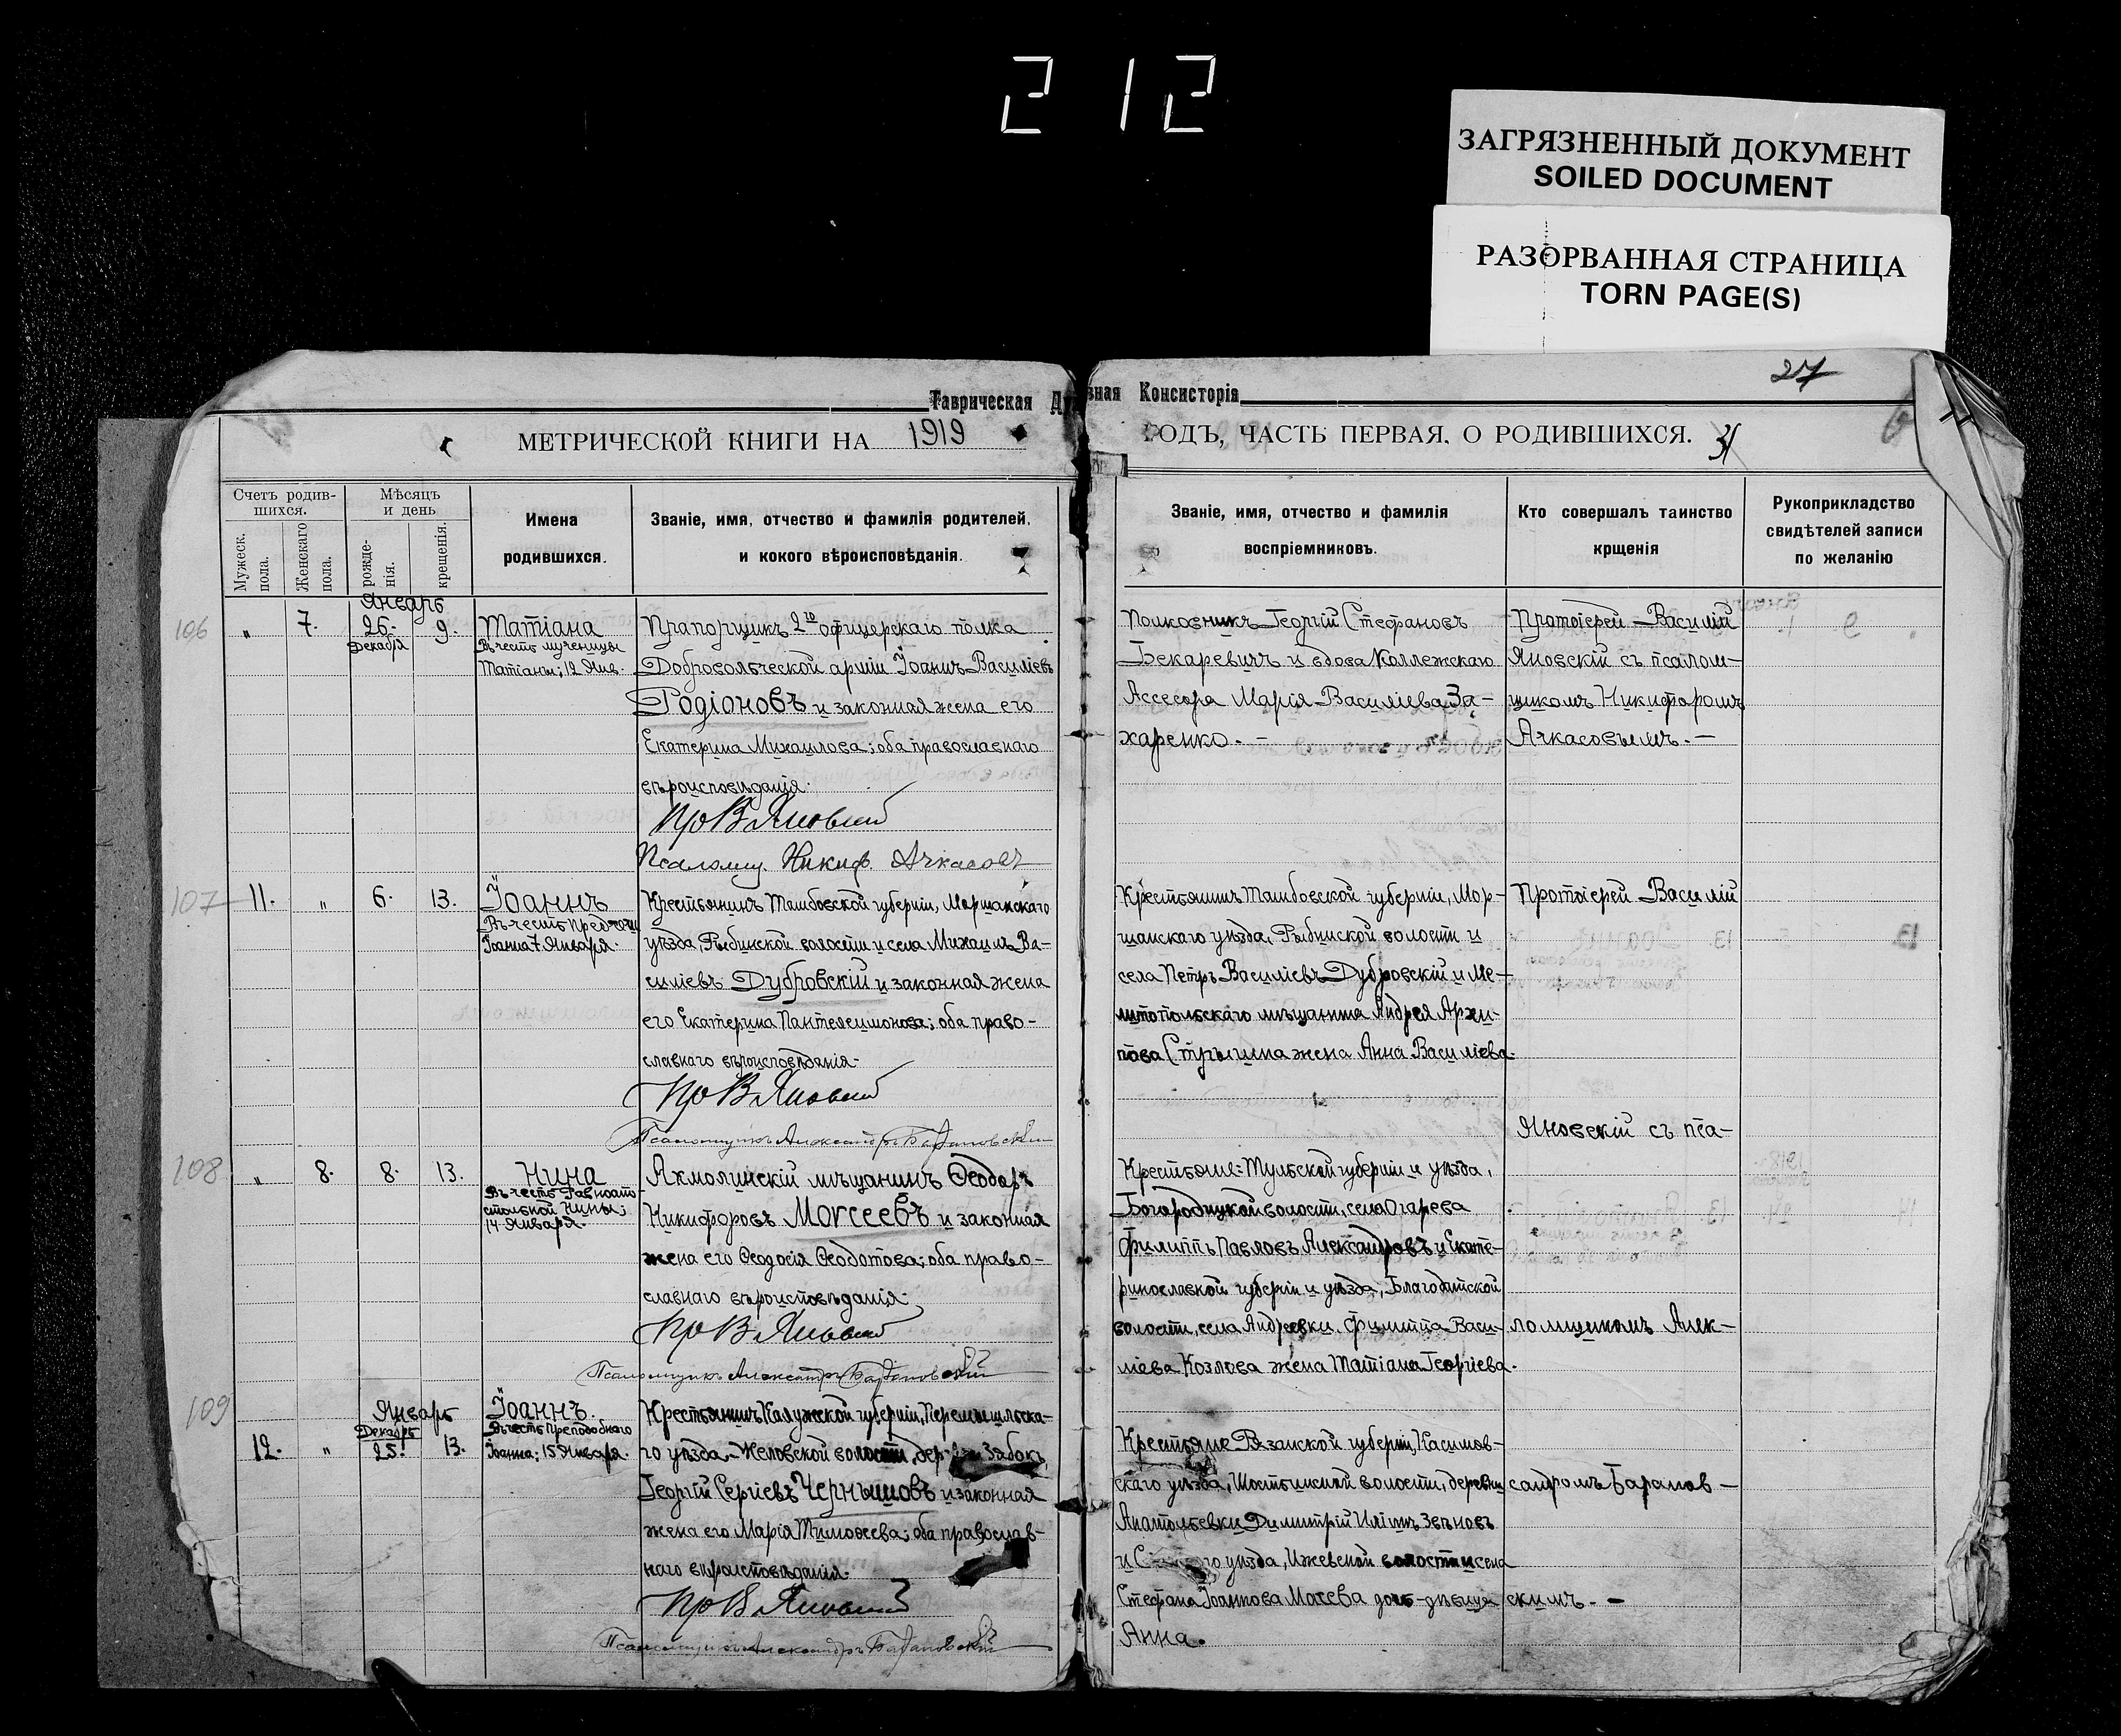 212
ЗАГРЯЗНЕННЫЙ ДОКУМЕНТ
SOILED DOCUMENT
РАЗОРВАННАЯ СТРАНИЦА
TORN PAGE(S)
27
Таврическая Ду
вная Консисторія
МЕТРИЧЕСКОЙ КНИГИ НА 1919
ГОДЪ, ЧАСТЬ ПЕРВАЯ, О РОДИВШИХСЯ.
Счетъ родив-
шихся.
Мужеск.
пола.
Женскаго
пола.
Мѣсяцъ
и день
рожде-
нія.
крещенія.
Имена
родившихся.
Званіе, имя, отчество и фамилія родителей,
и кокого вѣроисповѣданія.
Званіе, имя, отчество и фамилія
воспріемниковъ.
Кто совершалъ таинство
крщенія
Рукоприкладство
свидѣтелей записи
по желанію
106
"
7.
Январь
26.
Декабря
9.
Татіана
Въ честь мученицы
Татіаны; 12 Янв.
Прапорщикъ 2го офицерскаго полка
Добровольческой арміи Іоаннъ Василіевъ
Родіоновъ и законная жена его
Екатерина Михаилова; оба православнаго
вѣроисповѣданія.
Пр В Яновскій
Псаломщ. Никиф. Ачкасовъ
Полковникъ Георгій Стефановъ
Бекаревичъ и вдова Коллежскаго
Ассесора Марія Василіева За-
харенко. -
Протоіерей Василій
Яновскій съ псалом-
щикомъ Никифоромъ
Ачкасовымъ. -
107
11.
"
6.
13.
Іоаннъ
Въ честь Предтечи
Іоанна 7 Января.
Крестьянинъ Тамбовской губерніи, Моршанскаго
уѣзда, Рыбинской волости и села Михаилъ Ва-
силіевъ Дубровскій и законная жена
его Екатерина Пантелеимонова; оба право-
славнаго вѣроисповѣданія.
Пр В Яновскій
Псаломщикъ Александръ Барановскій
Крестьянинъ Тамбовской губерніи, Мор-
шанскаго уѣзда, Рыбинской волости и
села Петръ Василіевъ Дубровскій и Ме-
литопольскаго мѣщанина Андрея Архи-
пова Стрыгина жена Анна Василіева.
Протоіерей Василій
Яновскій съ пса-
108
"
8.
8.
13.
Нина
Въ честь Равноапо-
стольной Нины;
14 Января.
Акмолинскій мѣщанинъ Ѳеодоръ
Никифоровъ Моѵсеевъ и законная
жена его Ѳеодосія Ѳеодотова; оба право-
славнаго вѣроисповѣданія.
Пр В Яновскій
Псаломщикъ Александръ Барановскій
Крестьяне: Тульской губерніи и уѣзда,
Богородицкой волости, села Огарева
Филиппъ Павловъ Александровъ и Екате-
ринославской губерніи и уѣзда, Благодатской
волости, села Андреевки. Филиппа Васи-
ліева Козлова жена Татіана Георгіева.
ломщикомъ Алек-
109
12.
"
Январь
Декабрь
25.
13.
Іоаннъ.
Въ честь Преподобнаго
Іоанна; 15 Января.
Крестьянинъ Калужской губерніи, Перемышльска-
го уѣзда, Желовской волости, дер Забокъ
Георгій Сергіевъ Чернышовъ и законная
жена его Марія Тимоѳеева; оба православ-
наго вѣроисповѣданія.
Пр В Яновскій
Псаломщикъ Александръ Барановскій
Крестьяне Рязанской губерніи, Касимов-
скаго уѣзда, волости, деревни
Анатольевки Димитрій Иліинъ Звѣновъ
и го уѣзда, Ижевской волости и села
Стефана Іоаннова Матева дочь-дѣвица
Анна.
сандромъ Баранов-
скимъ. -